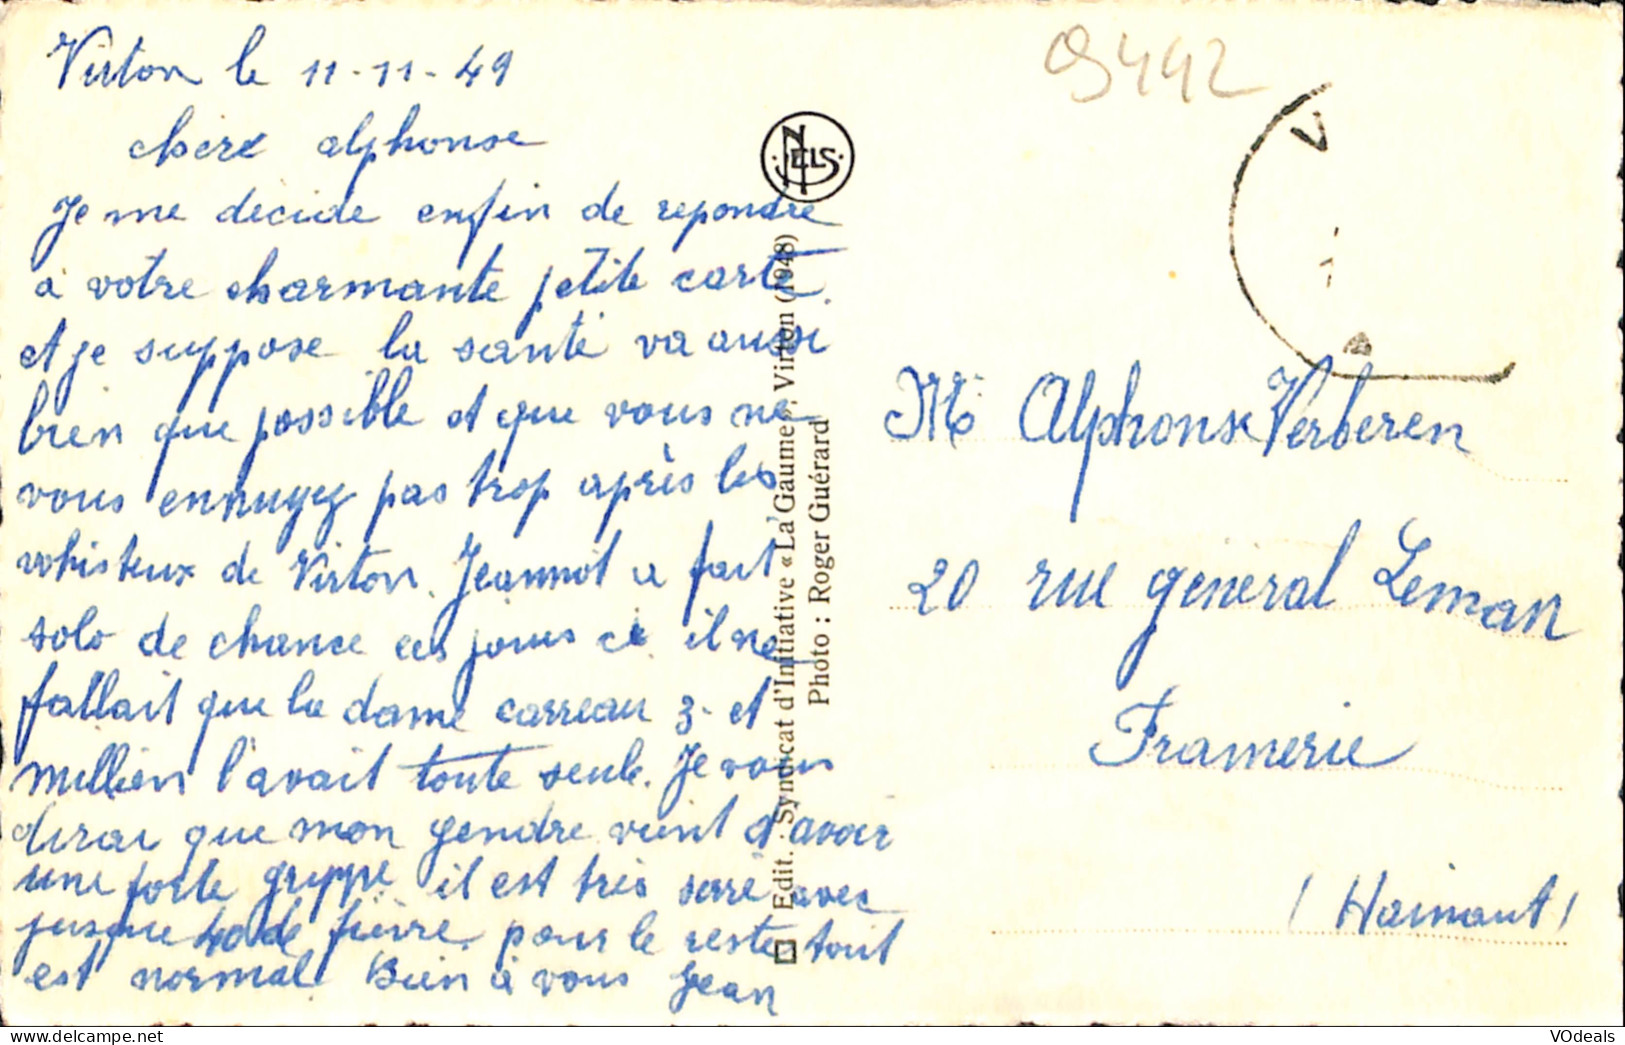 Virton le 11-11-49
chere alphonse
Je me decide enfin de repondre
a votre charmante petite carte
et je suppose la santé va aussi
bien que possible et que vous ne
vous ennuyez pas trop après les
whisteux de Virton. Jeannot a fait
solo de chance ces jours ci il ne
fallait que la dame carreau 3- et
Millien l'avait toute seule. Je vous
dirai que mon gendre vient d'avoir
une forte grippe il est très serré avec
jusque 40 de fievre. pour le reste tout
est normal Bien à vous Jean
NELS
Edit. Syndicat d'Initiative « La Gaume », Virton (1948)
Photo : Roger Guérard
9442
V
Mr Alphonse Verberen
20 rue general Leman
Framerie
(Hainaut)
VOdeals